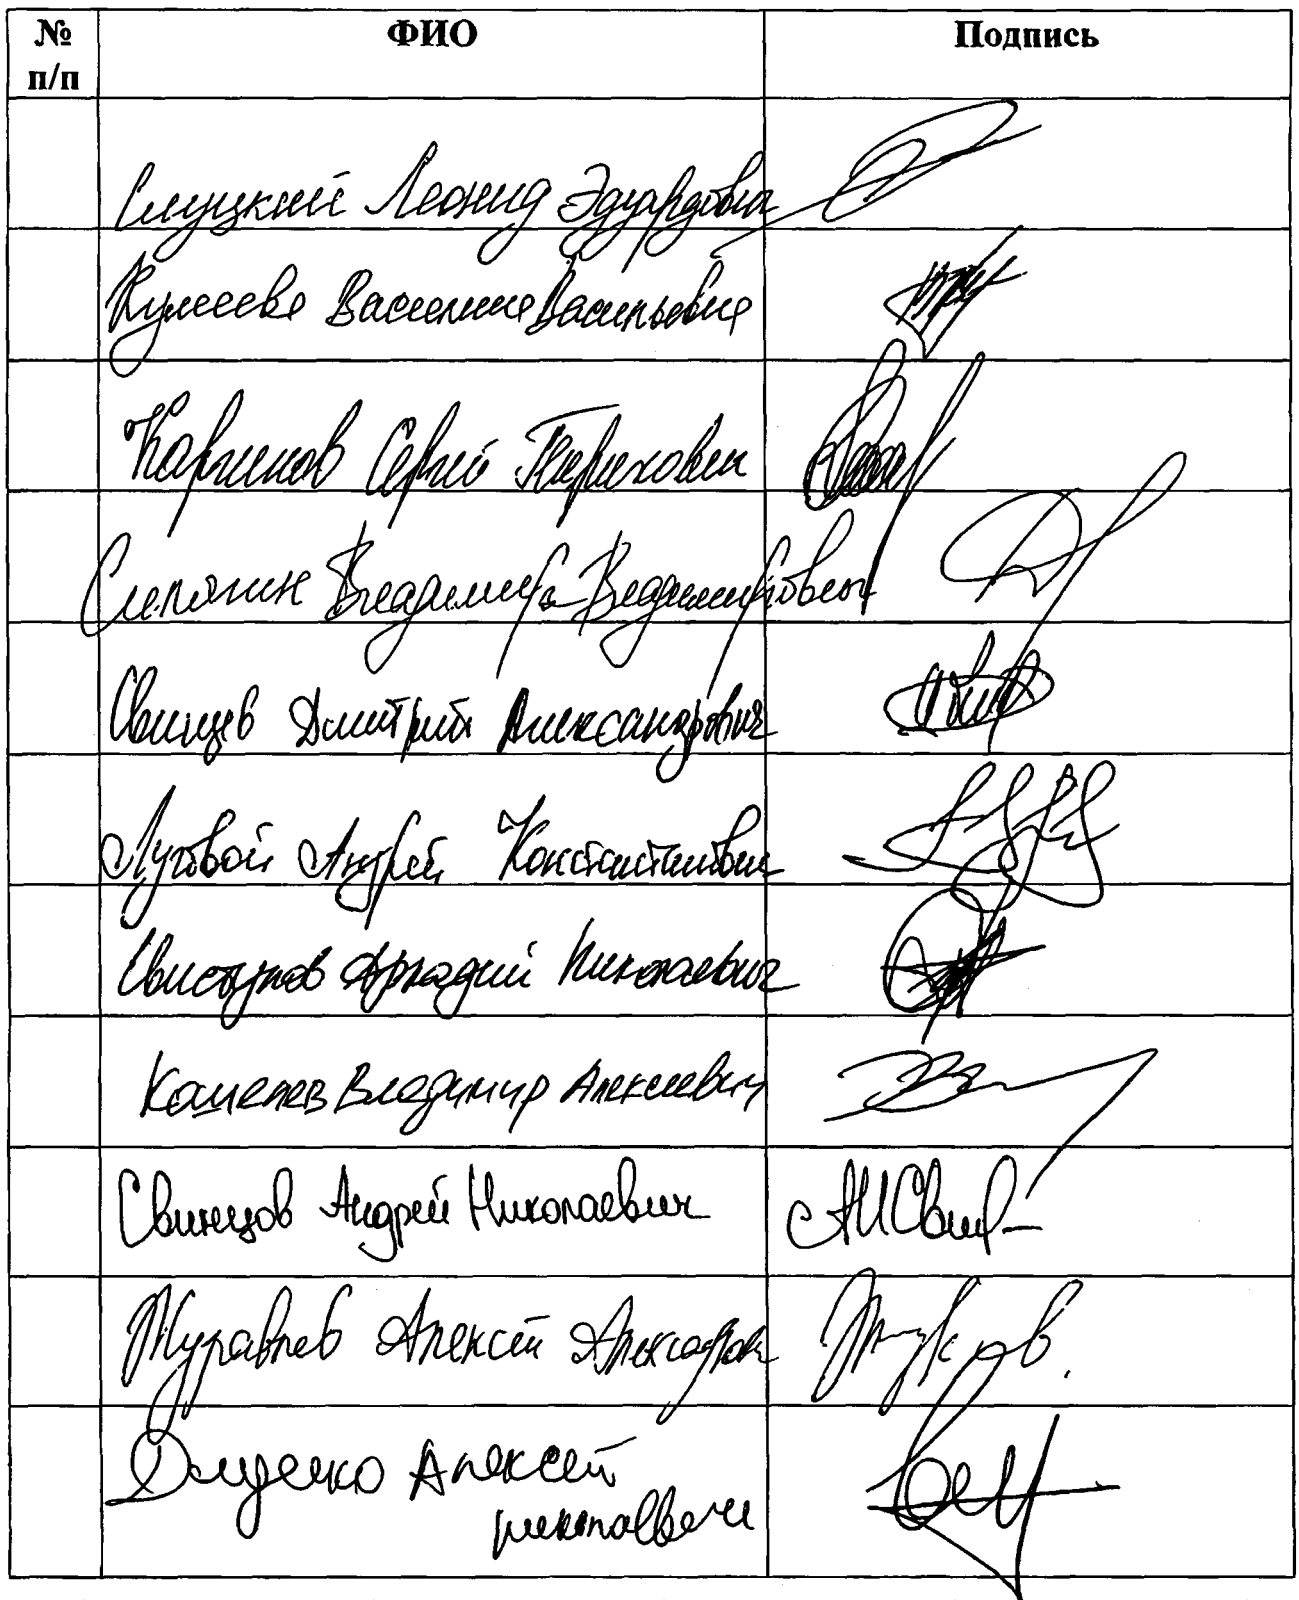 № ФИО Подпись
п/п
Слуцкий Леонид Эдуардович
Кулиева Василина Васильевна
Каргинов Сергей Генрихович
Сипягин Владимир Владимирович
Свинцев Дмитрий Александрович
Луговой Андрей Константинович
Свистунов Аркадий Николаевич
Кошелев Владимир Алексеевич
Свинцов Андрей Николаевич
Журавлев Алексей Александрович
Диденко Алексей
Николаевич